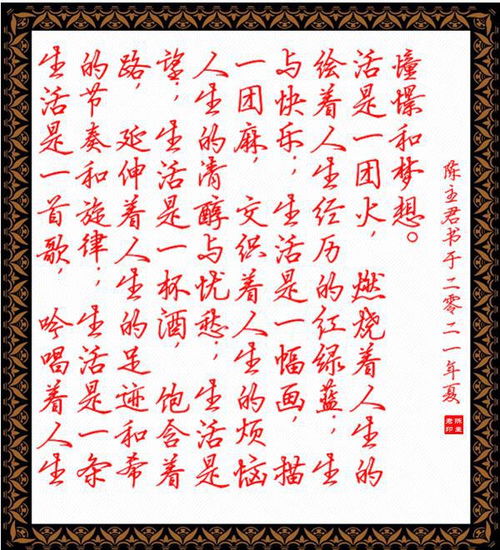 生活是一首歌，吟唱着人生
的节奏和旋律；生活是一条
路，延伸着人生的足迹和希
望；生活是一杯酒，饱含着
人生的清醇与忧愁；生活是
一团麻，交织着人生的烦恼
与快乐；生活是一幅画，描
绘着人生经历的红绿蓝；生
活是一团火，燃烧着人生的
憧憬和梦想。
陈君书于二零二一年夏